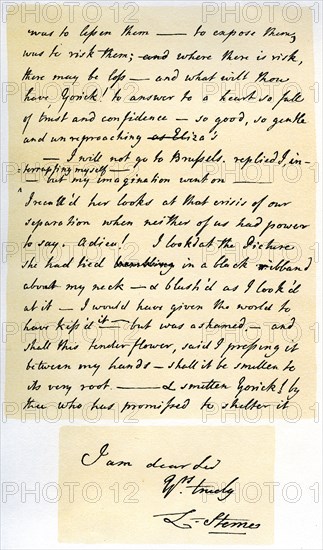 was to lessen them — to expose them,
was to risk them; and where there is risk,
there may be loss — and what wilt thou
have Yorick! to answer to a heart so full
of trust and confidence — so good, so gentle
and unreproaching as Eliza's
— I will not go to Brussels. replied I, in-
terrupting myself —
— but my imagination went on
I recall'd her looks at that crisis of our
separation when neither of us had power
to say. Adieu! I look'd at the Picture
she had tied trembling in a black ribband
about my neck — & blush'd as I look'd
at it — I would have given the world to
have kiss'd it — but was ashamed — and
shall this tender flower, said I pressing it
between my hands — shall it be smitten to
its very root — & smitten Yorick! by
thee who has promised to shelter it
I am dear Sir
Yrs truely
L. Sterne
PHOTO 12